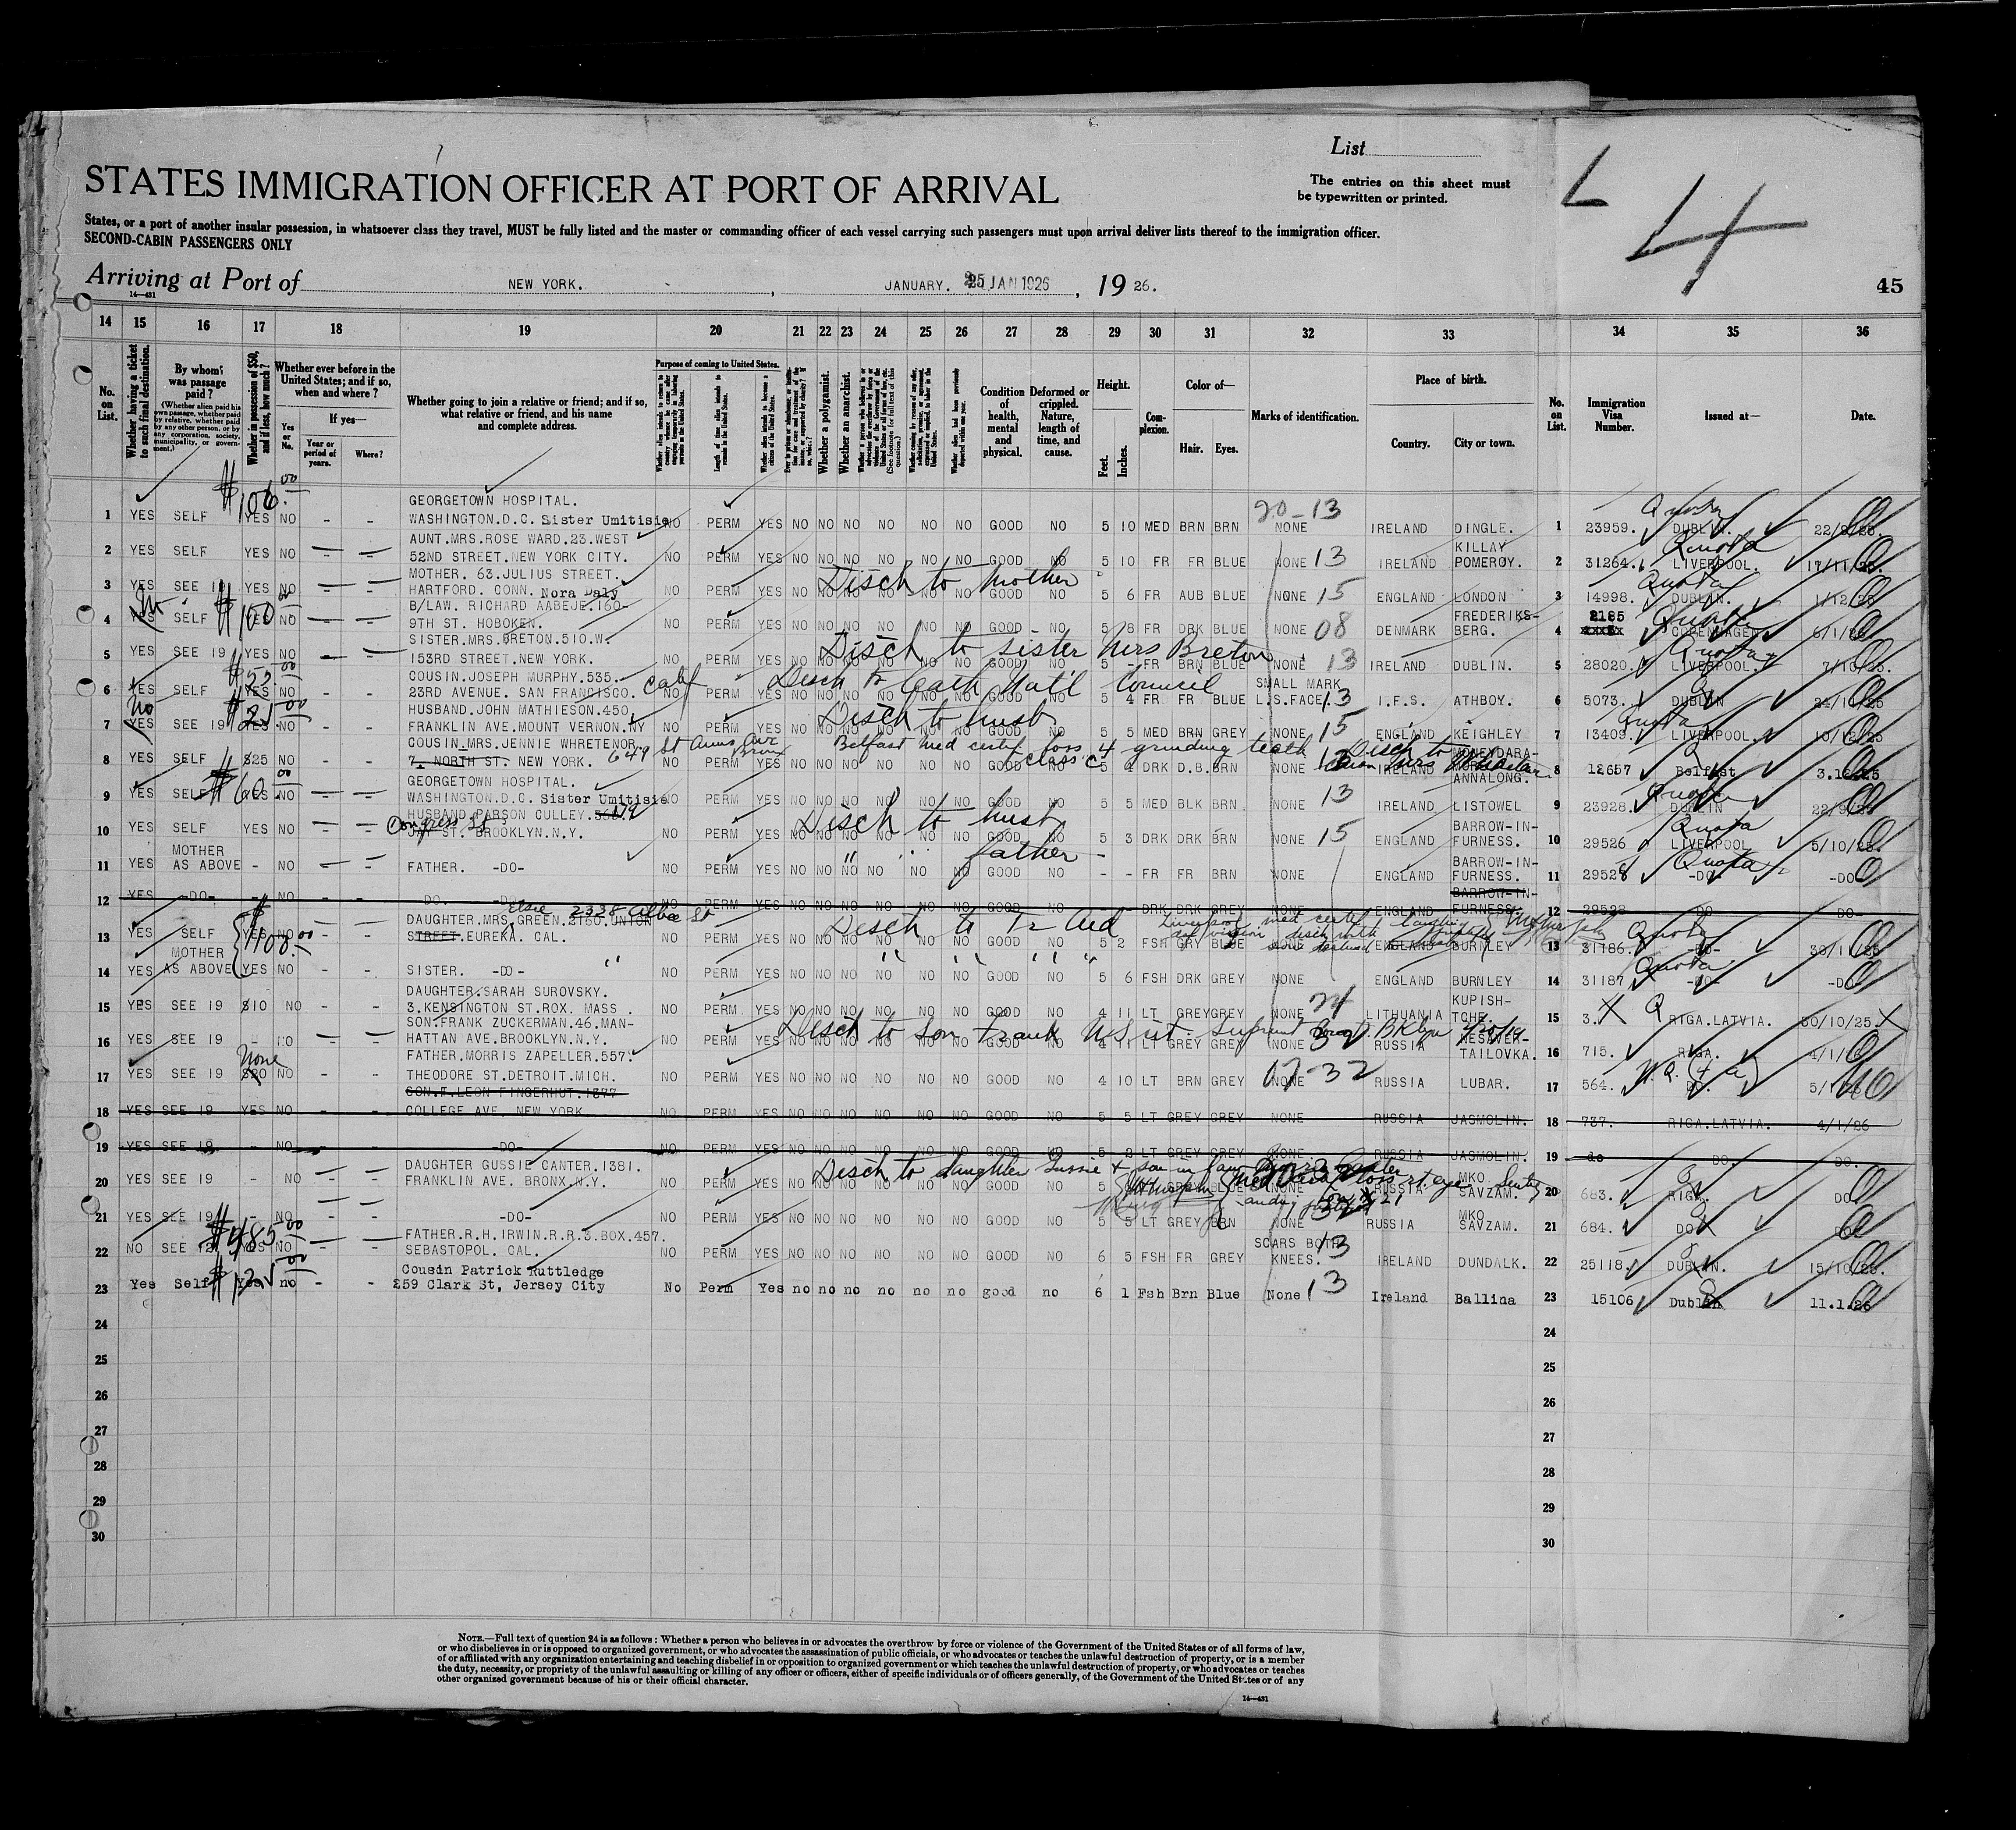 List
STATES IMMIGRATION OFFICER AT PORT OF ARRIVAL
The entries on this sheet must
be typewritten or printed.
States, or a port of another insular possession, in whatsoever class they travel, MUST be fully listed and the master or commanding officer of each vessel carrying such passengers must upon arrival deliver lists thereof to the immigration officer.
SECOND-CABIN PASSENGERS ONLY
4
Arriving at Port of NEW YORK. , JANUARY. 25 JAN 1926 , 19 26.
45
14—431
14 15 16 17 18 19 20 21 22 23 24 25 26 27 28 29 30 31 32 33 34 35 36
No. on List.
Whether having a ticket to such final destination.
By whom was passage paid?
(Whether alien paid his own passage, whether paid by relative, whether paid by any other person, or by any corporation, society, municipality, or government.)
Whether in possession of $50, and if less, how much?
Whether ever before in the United States; and if so, when and where?
Yes or No.
If yes—
Year or period of years.
Where?
Whether going to join a relative or friend; and if so, what relative or friend, and his name and complete address.
Purpose of coming to United States.
Length of time alien intends to remain in the United States.
Whether alien intends to become a citizen of the United States.
Whether a polygamist.
Whether an anarchist.
(See footnote for full text of this question.)
Condition of health, mental and physical.
Deformed or crippled. Nature, length of time, and cause.
Height.
Feet. Inches.
Complexion.
Color of—
Hair. Eyes.
Marks of identification.
Place of birth.
Country. City or town.
No. on List.
Immigration Visa Number.
Issued at—
Date.
$106.00
GEORGETOWN HOSPITAL. 20-13 Quota
1 YES SELF YES NO - - WASHINGTON.D.C. Sister Umitisie NO PERM YES NO NO NO NO NO NO GOOD NO 5 10 MED BRN BRN NONE IRELAND DINGLE. 1 23959. DUBLIN. 22/9/25.
AUNT.MRS.ROSE WARD.23.WEST KILLAY Quota
2 YES SELF YES NO — — 52ND STREET.NEW YORK CITY. NO PERM YES NO NO NO NO NO NO GOOD NO 5 10 FR FR BLUE NONE 13 IRELAND POMEROY. 2 31264. LIVERPOOL. 17/11/25.
MOTHER. 63.JULIUS STREET. Disch to Mother Quota
3 YES SEE 19 YES NO — — HARTFORD. CONN. Nora Daly NO PERM YES NO NO NO NO NO NO GOOD NO 5 6 FR AUB BLUE NONE 15 ENGLAND LONDON 3 14998. DUBLIN. 1/12/25
$100.00 B/LAW. RICHARD AABEJE.160- FREDERIKS- 2185 Quota
4 YES SELF YES NO — — 9TH ST. HOBOKEN. NO PERM YES NO NO NO NO NO NO GOOD NO 5 8 FR DRK BLUE NONE 08 DENMARK BERG. 4 COPENHAGEN 6/1/26
SISTER.MRS.BRETON.510.W. Disch to sister Mrs Breton Quota
5 YES SEE 19 YES NO — — 153RD STREET.NEW YORK. NO PERM YES NO NO NO NO NO NO GOOD NO 5 - FR BRN BLUE NONE 13 IRELAND DUBLIN. 5 28020. LIVERPOOL. 7/10/25.
$55.00 COUSIN.JOSEPH MURPHY.535. Calif Disch to Cath Nat'l Council SMALL MARK
6 YES SELF YES NO - - 23RD AVENUE. SAN FRANCISCO. NO PERM YES NO NO NO NO NO NO GOOD NO 5 4 FR FR BLUE L.S.FACE. 13 I.F.S. ATHBOY. 6 5073. DUBLIN 24/11/25
No $25.00 HUSBAND.JOHN MATHIESON.450. Disch to husb Quota
7 YES SEE 19 YES NO - - FRANKLIN AVE.MOUNT VERNON.NY NO PERM YES NO NO NO NO NO NO GOOD NO 5 5 MED BRN GREY NONE 15 ENGLAND KEIGHLEY 7 13409. LIVERPOOL. 10/12/25
COUSIN.MRS.JENNIE WHRETENOR. 649 St Anns Ave Bronx Belfast med certif loss 4 grinding teeth class C Disch to MONEYDARA-
8 YES SELF $25 NO - - 7. NORTH ST. NEW YORK. NO PERM YES NO NO NO NO NO NO GOOD NO 5 4 DRK D.B. BRN NONE 13 IRELAND ANNALONG. 8 12657 Belfast
$60.00 GEORGETOWN HOSPITAL.
9 YES SELF YES NO - - WASHINGTON.D.C. Sister Umitisie NO PERM YES NO NO NO NO NO NO GOOD NO 5 5 MED BLK BRN NONE 13 IRELAND LISTOWEL 9 23928. DUBLIN 22/9/25
HUSBAND PARSON CULLEY. 179 Congress St. Disch to husb BARROW-IN- Quota
10 YES SELF YES NO — — JAY ST. BROOKLYN.N.Y. NO PERM YES NO NO NO NO NO NO GOOD NO 5 3 DRK DRK BRN NONE 15 ENGLAND FURNESS. 10 29526 LIVERPOOL 5/10/25.
MOTHER " " father BARROW-IN- Quota
11 YES AS ABOVE - NO — — FATHER. -DO- NO PERM YES NO NO NO NO NO NO GOOD NO - - FR FR BRN NONE ENGLAND FURNESS. 11 29528 -DO- -DO-
BARROW-IN-
12 YES -DO- - NO DO. -DO- NO PERM YES NO NO NO NO NO NO GOOD NO DRK DRK GREY NONE ENGLAND FURNESS. 12 29528 DO DO-
Elsie 2338 Albee St
$1100.00 DAUGHTER.MRS.GREEN.3160.UNION Disch to Tr Aid Quota
13 YES SELF NO — — STREET.EUREKA. CAL. NO PERM YES NO NO NO NO NO NO GOOD NO 5 2 FSH GRY BLUE NONE ENGLAND BURNLEY 13 31186. -DO- 30/11/25
MOTHER " " " " Quota
14 YES AS ABOVE YES NO — — SISTER. -DO- NO PERM YES NO NO NO NO NO NO GOOD NO 5 6 FSH DRK GREY ENGLAND BURNLEY 14 31187 -DO- -DO-
DAUGHTER.SARAH SUROVSKY. KUPISH-
15 YES SEE 19 $10 NO - - 3.KENSINGTON ST.ROX. MASS. NO PERM YES NO NO NO NO NO NO GOOD NO 4 11 LT GREY GREY NONE 24 LITHUANIA TCHE. 15 3. RIGA.LATVIA. 30/10/25.
SON.FRANK ZUCKERMAN.46.MAN- Disch to son Frank US cit.
16 YES SEE 19 - NO — — HATTAN AVE.BROOKLYN.N.Y. NO PERM YES NO NO NO NO NO NO GOOD NO 4 11 LT GREY GREY NONE 32 RUSSIA TAILOVKA. 16 715. RIGA. 4/1/26
None FATHER.MORRIS ZAPELLER.557.
17 YES SEE 19 $20 NO - - THEODORE ST.DETROIT.MICH. NO PERM YES NO NO NO NO NO NO GOOD NO 4 10 LT BRN GREY NONE 07-32 RUSSIA LUBAR. 17 564. DO. 5/1/26
SON.F.LEON FINGERHUT.1377
18 YES SEE 19 YES NO - - COLLEGE AVE. NEW YORK. NO PERM YES NO NO NO NO NO NO GOOD NO 5 5 LT GREY GREY NONE RUSSIA JASMOLIN. 18 737. RIGA.LATVIA. 4/1/26
19 YES SEE 19 - NO - - -DO- NO PERM YES NO NO NO NO NO NO GOOD NO 5 2 LT GREY GREY NONE RUSSIA JASMOLIN. 19 do DO. DO.
DAUGHTER GUSSIE CANTER.1381. Disch to daughter Gussie + son in law MKO
20 YES SEE 19 - NO — — FRANKLIN AVE. BRONX.N.Y. NO PERM YES NO NO NO NO NO NO GOOD NO 5 BLUE NONE RUSSIA SAVZAM. 20 683. RIGA. DO
MKO
21 YES SEE 19 - NO — — -DO- NO PERM YES NO NO NO NO NO NO GOOD NO 5 5 LT GREY BRN NONE 32 RUSSIA SAVZAM. 21 684. DO DO
$485.00 FATHER.R.H.IRWIN.R.R.3.BOX.457. SCARS BOTH 13
22 NO SEE 12 YES NO — — SEBASTOPOL. CAL. NO PERM YES NO NO NO NO NO NO GOOD NO 6 5 FSH FR GREY KNEES. IRELAND DUNDALK. 22 25118. DUBLIN. 15/10/25.
$125.00 Cousin Patrick Ruttledge
23 Yes Self Yes no - - 259 Clark St, Jersey City No Perm Yes no no no no no no good no 6 1 Fsh Brn Blue None 13 Ireland Ballina 23 15106 Dublin 11.1.26
24 24
25 25
26 26
27 27
28 28
29 29
30 30
NOTE.—Full text of question 24 is as follows: Whether a person who believes in or advocates the overthrow by force or violence of the Government of the United States or of all forms of law,
or who disbelieves in or is opposed to organized government, or who advocates the assassination of public officials, or who advocates or teaches the unlawful destruction of property, or is a member
of or affiliated with any organization entertaining and teaching disbelief in or opposition to organized government or which teaches the unlawful destruction of property, or who advocates or teaches
the duty, necessity, or propriety of the unlawful assaulting or killing of any officer or officers, either of specific individuals or of officers generally, of the Government of the United States or of any
other organized government because of his or their official character.
14—431